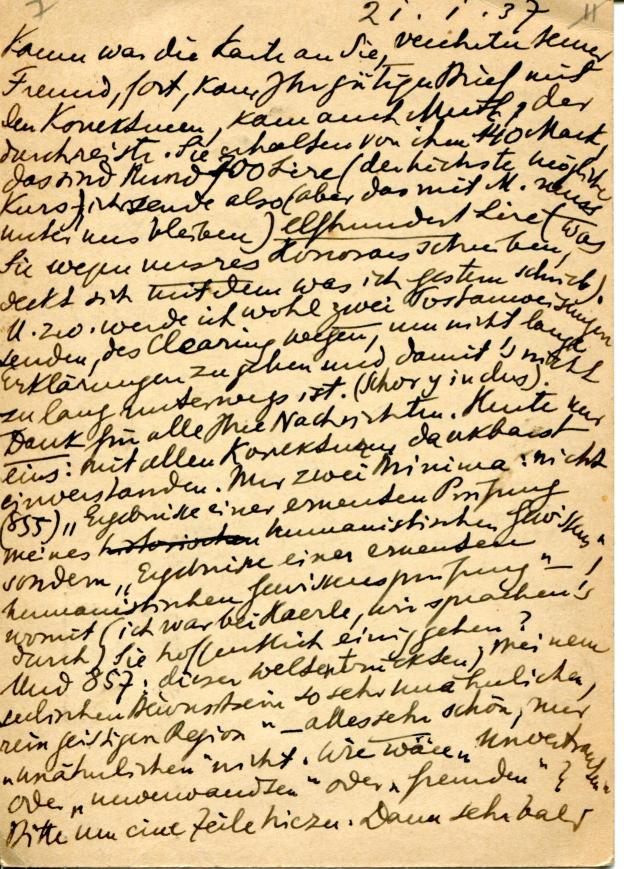 21. I. 37
Kaum war die Karte an Sie, verehrter lieber
Freund, fort, kam Ihr gütiger Brief mit
den Korrekturen, kam auch Muth, der
durchreiste. Sie erhalten von ihm 140 Mark,
das sind rund 700 Lire (der höchste mögliche
Kurs). Ich sende also (aber das mit M. muss
unter uns bleiben) elfhundert Lire (was
Sie wegen unsres Honorars schrieben,
deckt sich mit dem was ich gestern schrieb).
U. zw. werde ich wohl zwei Postanweisungen
senden, des Clearing wegen, um nicht lange
Erklärungen zu geben und damit's nicht
zu lang unterwegs ist.
Dank für alle Ihre Nachrichten. Heute nur
eins: mit allen Korrekturen dankbarst
einverstanden. Nur zwei Minima: nicht
(855) „Ergebnisse einer erneuten Prüfung
meines historischen humanistischen Gewissens",
sondern „Ergebnisse einer erneuten
humanistischen Gewissensprüfung" – !
womit (ich war bei Haerle, wir sprachen's
durch) Sie hoffentlich einig gehen?
Und 857: dieser weltentrückten, meinem
seelischen Bewusstsein so sehr unähnlichen,
rein geistigen Region" – alles sehr schön, nur
„unähnlichen" nicht. Wie wäre „unvertrauten"
oder „unverwandten" oder „fremden"?
Bitte um eine Zeile hiezu. Dann sehr bald